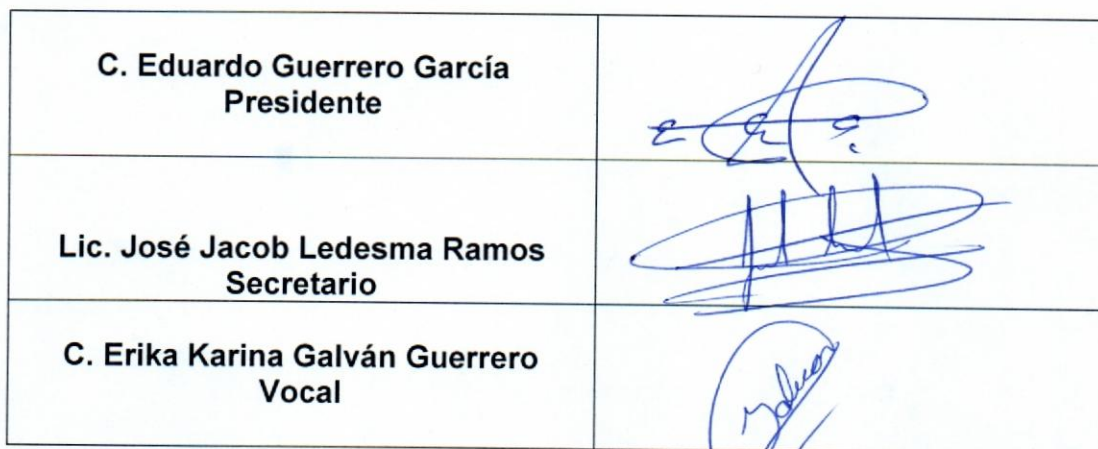 C. Eduardo Guerrero García
Presidente
Lic. José Jacob Ledesma Ramos
Secretario
C. Erika Karina Galván Guerrero
Vocal